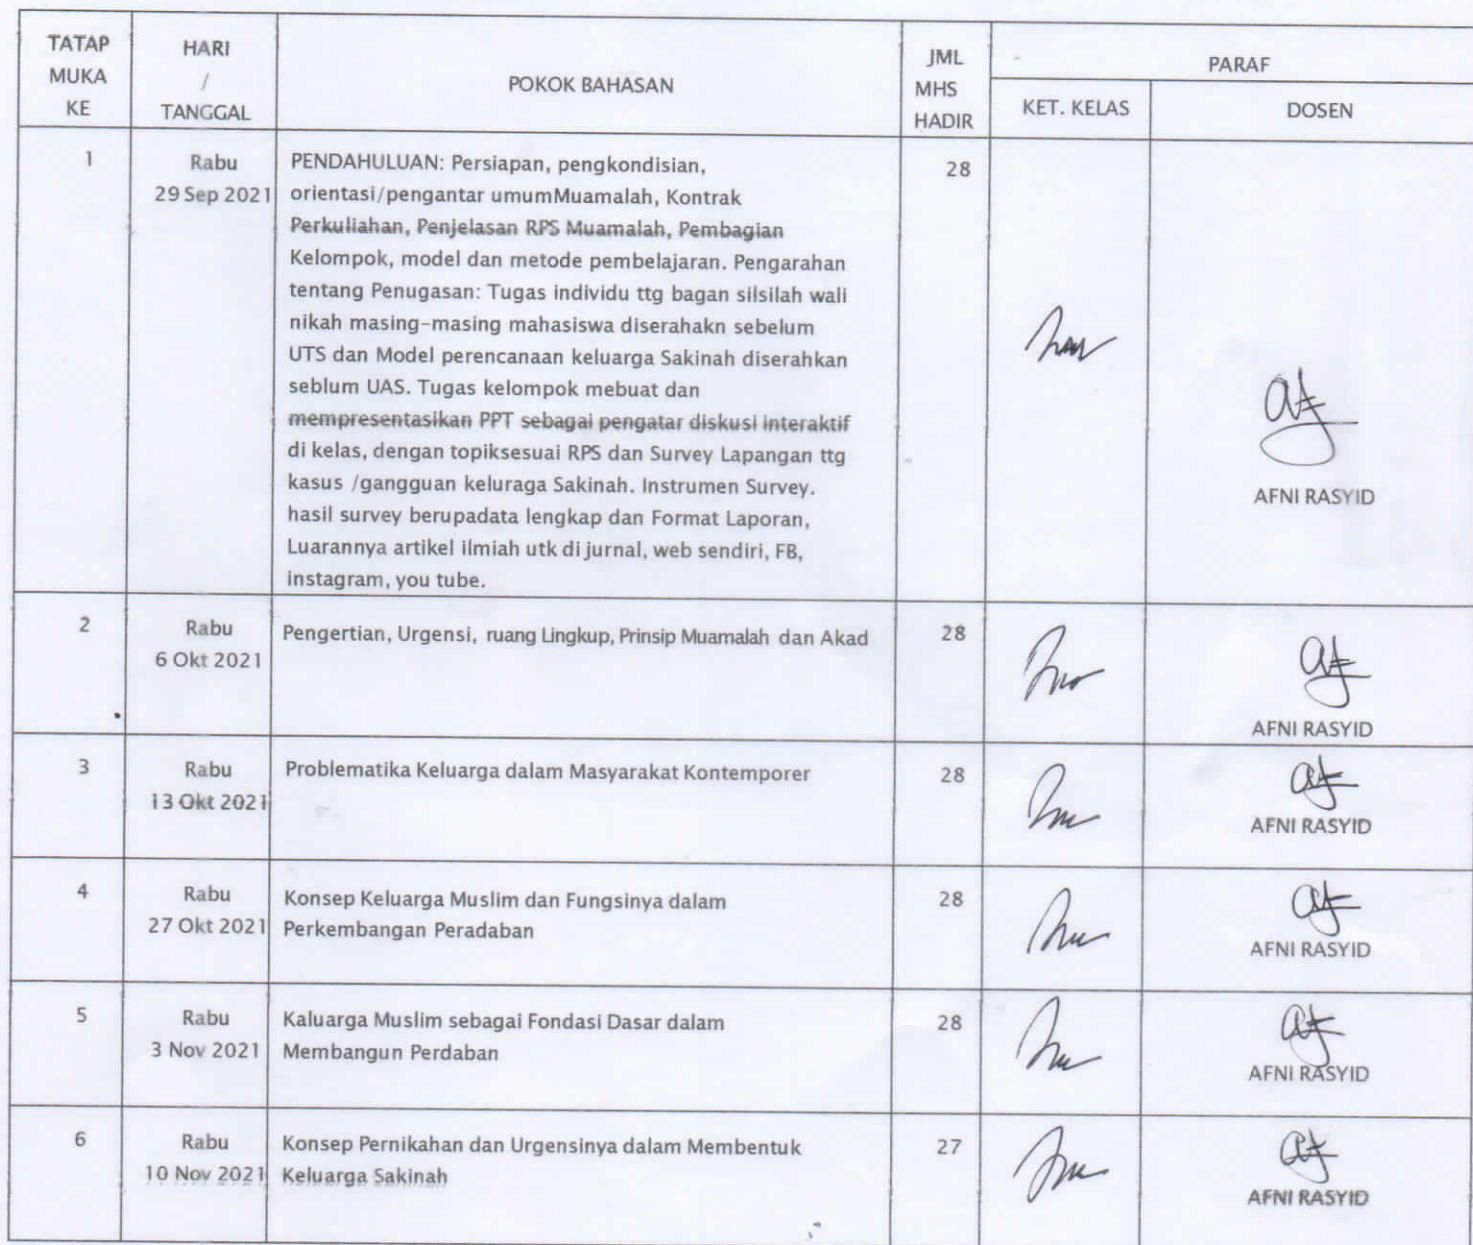 TATAP MUKA KE
HARI / TANGGAL
POKOK BAHASAN
JML MHS HADIR
PARAF
KET. KELAS
DOSEN
1
Rabu
29 Sep 2021
PENDAHULUAN: Persiapan, pengkondisian,
orientasi/pengantar umumMuamalah, Kontrak
Perkuliahan, Penjelasan RPS Muamalah, Pembagian
Kelompok, model dan metode pembelajaran. Pengarahan
tentang Penugasan: Tugas individu ttg bagan silsilah wali
nikah masing-masing mahasiswa diserahakn sebelum
UTS dan Model perencanaan keluarga Sakinah diserahkan
seblum UAS. Tugas kelompok mebuat dan
mempresentasikan PPT sebagai pengatar diskusi interaktif
di kelas, dengan topiksesuai RPS dan Survey Lapangan ttg
kasus /gangguan keluraga Sakinah. Instrumen Survey.
hasil survey berupadata lengkap dan Format Laporan,
Luarannya artikel ilmiah utk di jurnal, web sendiri, FB,
instagram, you tube.
28
AFNI RASYID
2
Rabu
6 Okt 2021
Pengertian, Urgensi, ruang Lingkup, Prinsip Muamalah dan Akad
28
AFNI RASYID
3
Rabu
13 Okt 2021
Problematika Keluarga dalam Masyarakat Kontemporer
28
AFNI RASYID
4
Rabu
27 Okt 2021
Konsep Keluarga Muslim dan Fungsinya dalam
Perkembangan Peradaban
28
AFNI RASYID
5
Rabu
3 Nov 2021
Kaluarga Muslim sebagai Fondasi Dasar dalam
Membangun Perdaban
28
AFNI RASYID
6
Rabu
10 Nov 2021
Konsep Pernikahan dan Urgensinya dalam Membentuk
Keluarga Sakinah
27
AFNI RASYID